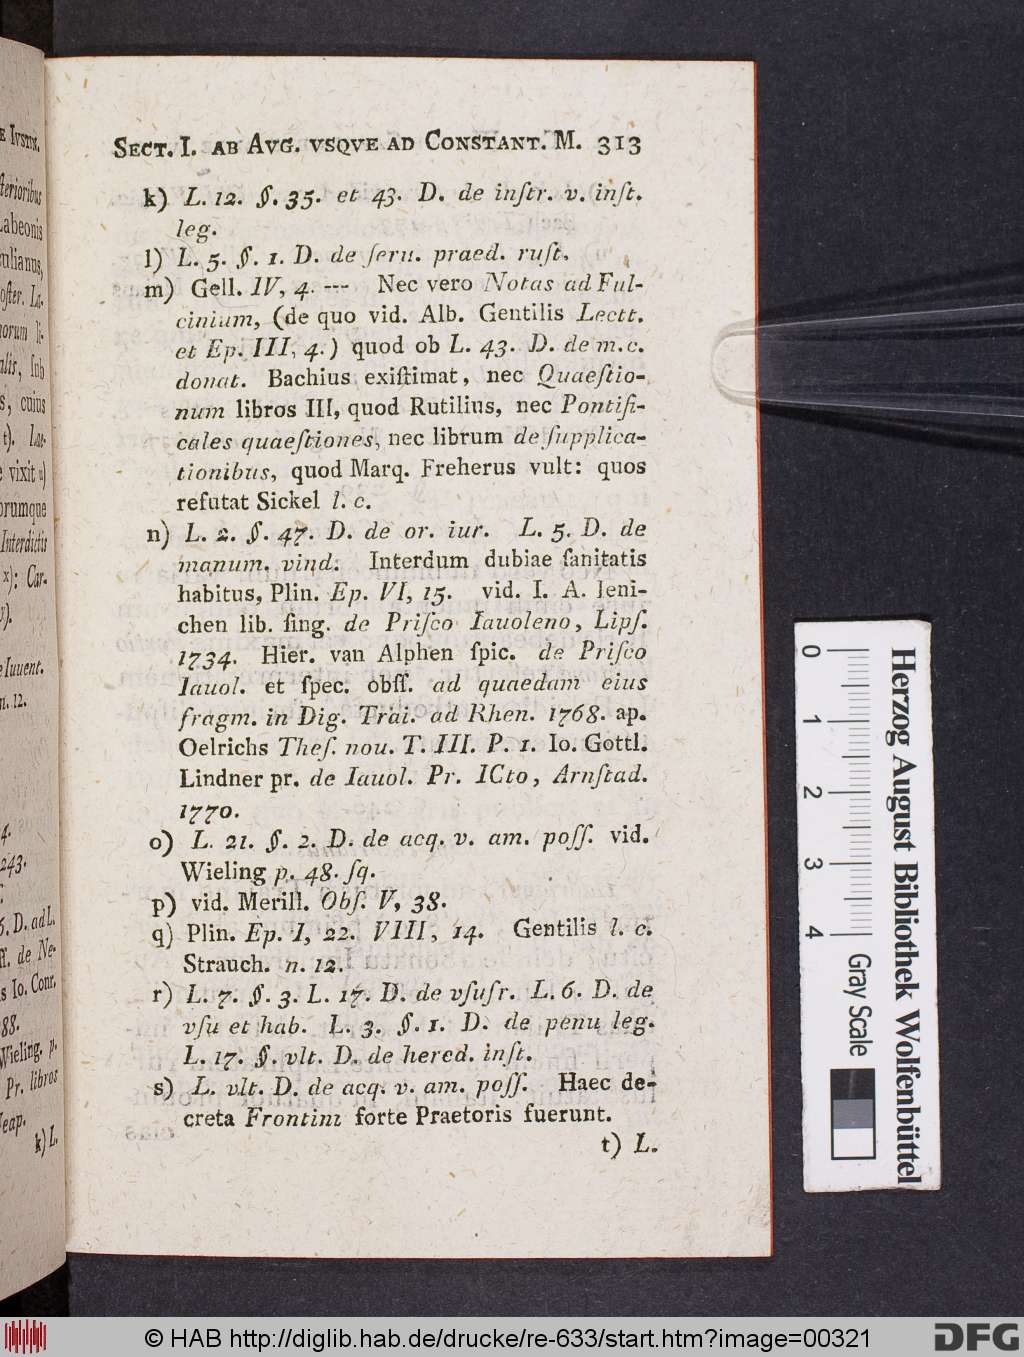 SECT. I. AB AVG. VSQVE AD CONSTANT. M. 313
k) L. 12. §. 35. et 43. D. de inſtr. v. inſt.
leg.
l) L. 5. §. 1. D. de ſeru. praed. ruſt.
m) Gell. IV, 4. --- Nec vero Notas ad Ful-
cinium, (de quo vid. Alb. Gentilis Lectt.
et Ep. III, 4.) quod ob L. 43. D. de m. c.
donat. Bachius exiſtimat, nec Quaeſtio-
num libros III, quod Rutilius, nec Pontifi-
cales quaeſtiones, nec librum de ſupplica-
tionibus, quod Marq. Freherus vult: quos
refutat Sickel l. c.
n) L. 2. §. 47. D. de or. iur. L. 5. D. de
manum. vind. Interdum dubiae ſanitatis
habitus, Plin. Ep. VI, 15. vid. I. A. Ieni-
chen lib. ſing. de Priſco Iauoleno, Lipſ.
1734. Hier. van Alphen ſpic. de Priſco
Iauol. et ſpec. obſſ. ad quaedam eius
fragm. in Dig. Trai. ad Rhen. 1768. ap.
Oelrichs Theſ. nou. T. III. P. 1. Io. Gottl.
Lindner pr. de Iauol. Pr. ICto, Arnſtad.
1770.
o) L. 21. §. 2. D. de acq. v. am. poſſ. vid.
Wieling p. 48. ſq.
p) vid. Merill. Obſ. V, 38.
q) Plin. Ep. I, 22. VIII, 14. Gentilis l. c.
Strauch. n. 12.
r) L. 7. §. 3. L. 17. D. de vſufr. L. 6. D. de
vſu et hab. L. 3. §. 1. D. de penu leg.
L. 17. §. vlt. D. de hered. inſt.
s) L. vlt. D. de acq. v. am. poſſ. Haec de-
creta Frontini forte Praetoris fuerunt.
t) L.
Herzog August Bibliothek Wolfenbüttel
0 1 2 3 4 Gray Scale
© HAB http://diglib.hab.de/drucke/re-633/start.htm?image=00321
DFG